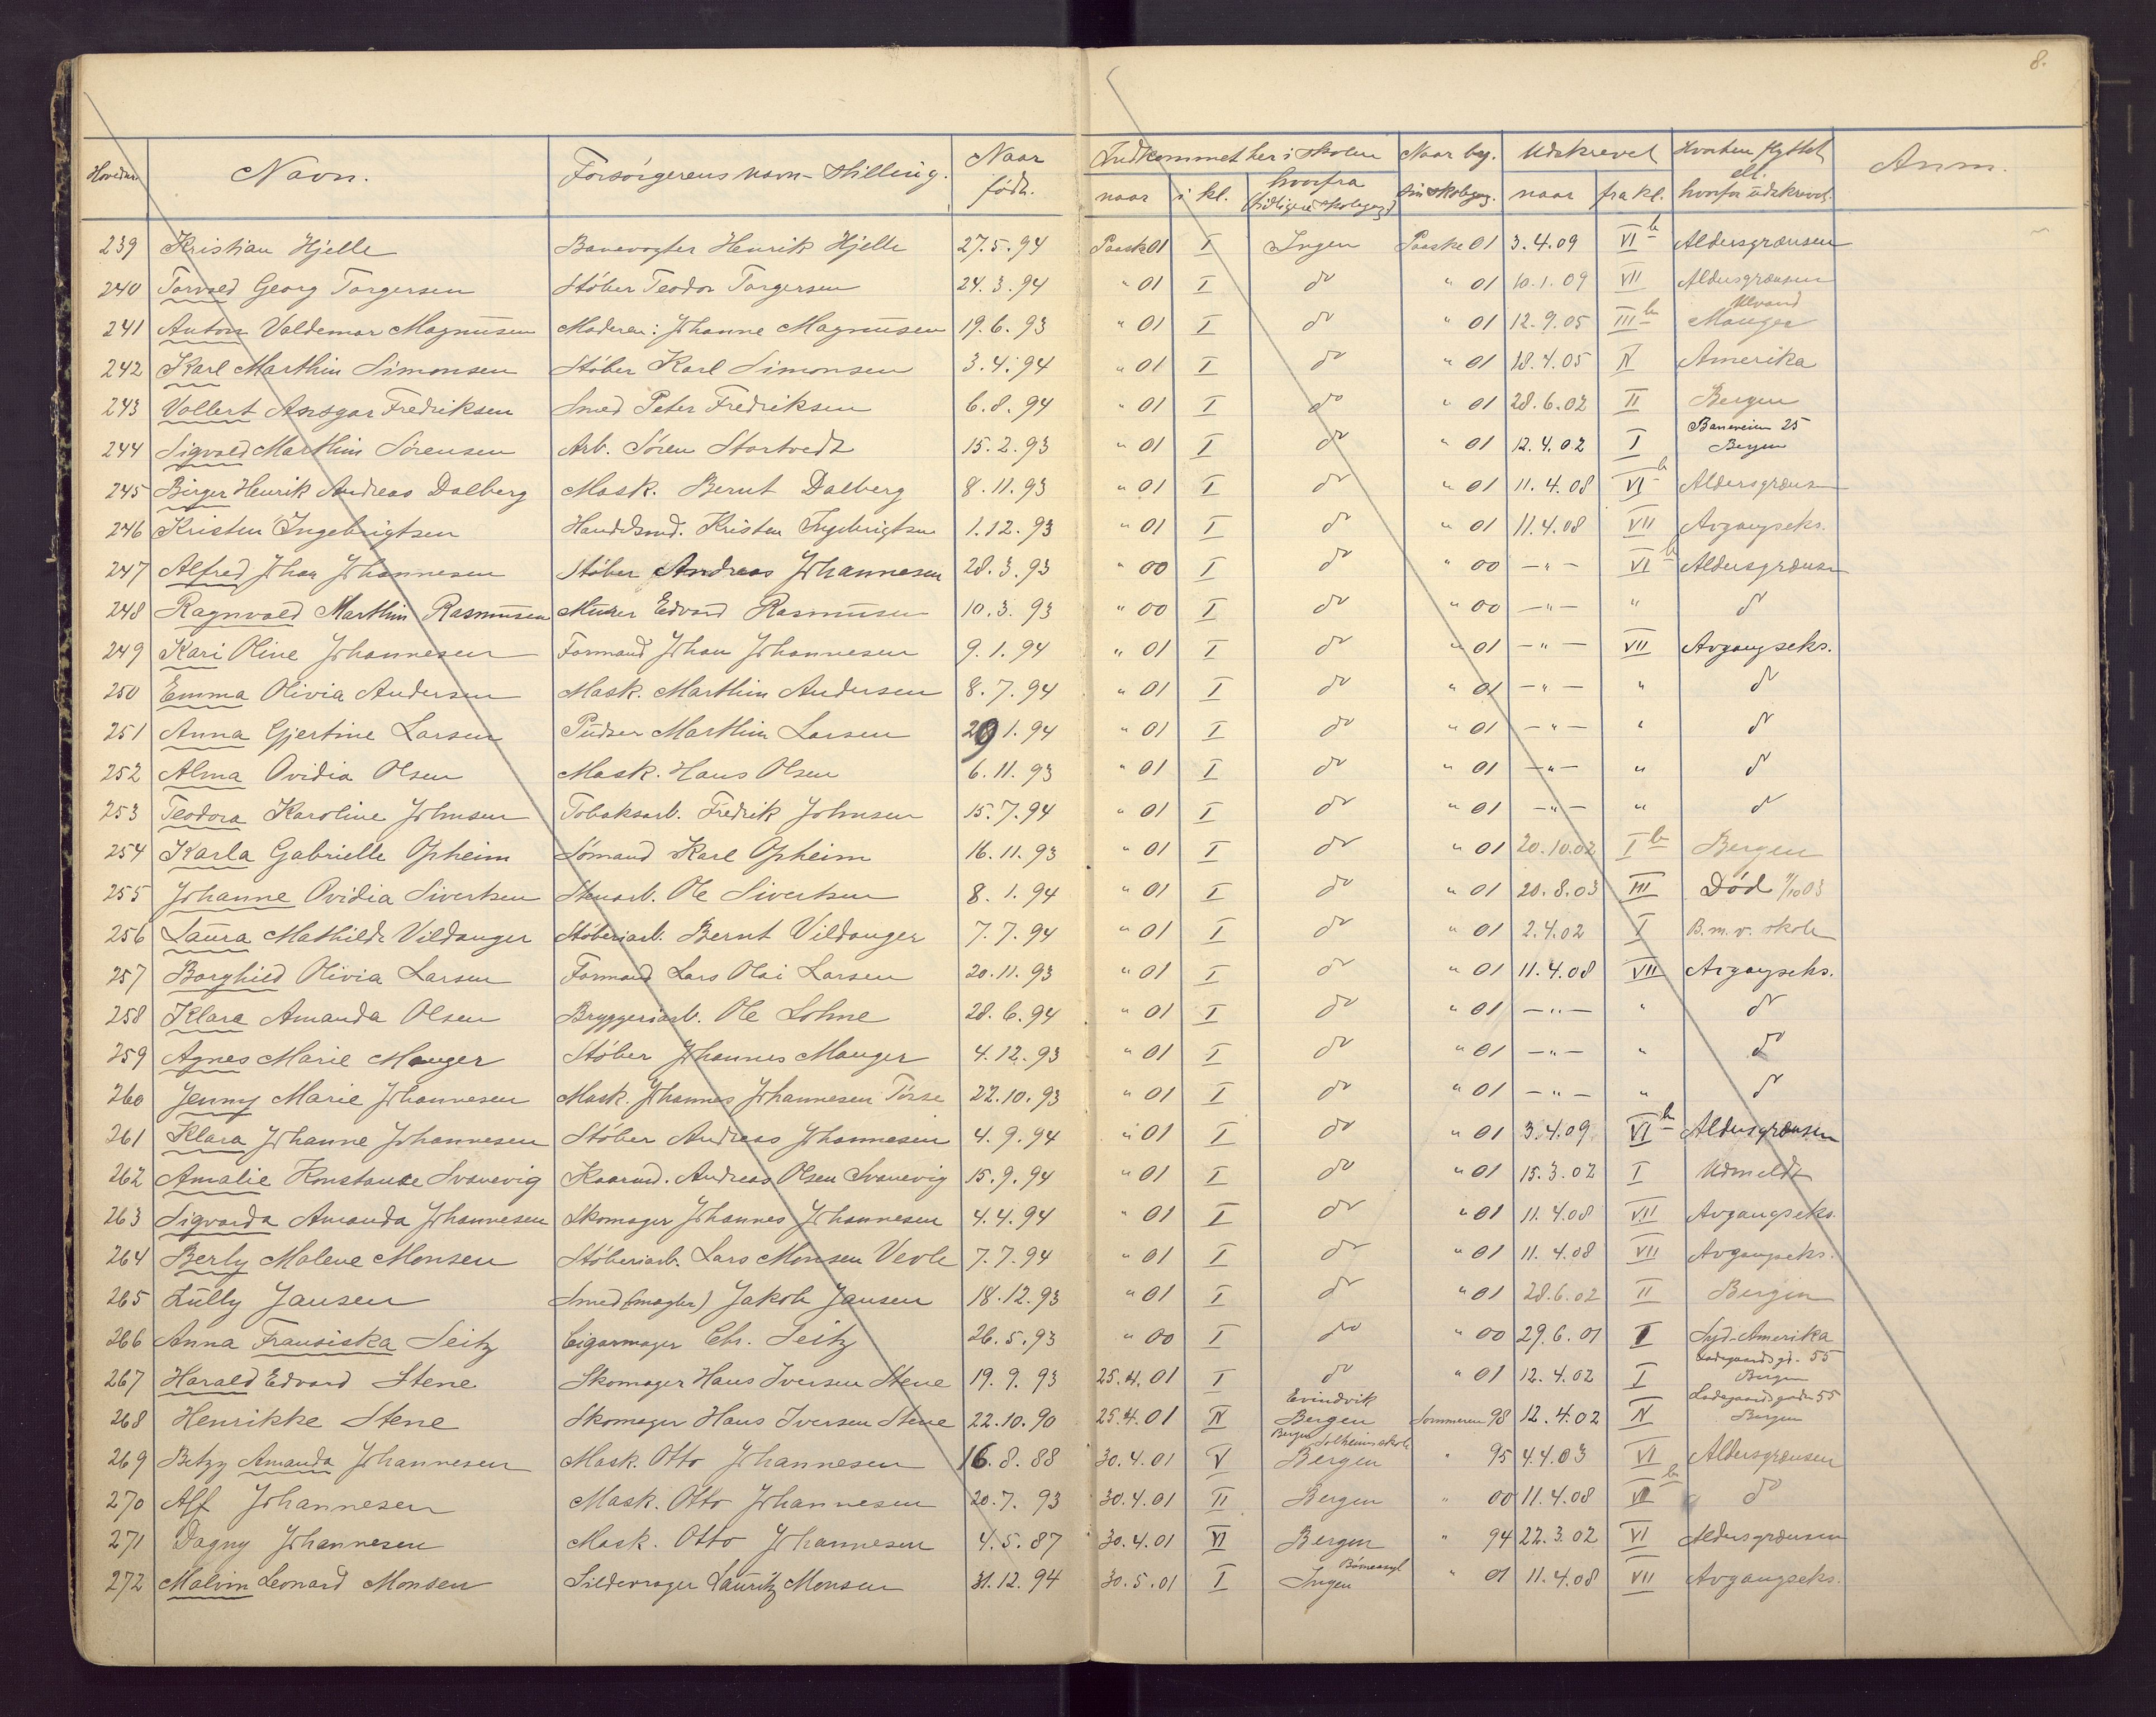 8.
Hovednr. Navn. Forsørgerens navn - stilling. Naar født. Indkommet her i skolen Naar beg. sin skolegang. Udskrevet Hvorhen flyttet ell. hvorfor udskrevet. Anm.
naar i kl. hvorfra (tidligere skolegang) naar fra kl.
239 Kristian Hjelle Banevogter Henrik Hjelle 27.5.94 Paaske 01 I Ingen Paaske 01 3.4.09 VI b Aldersgrænsen
240 Torvald Georg Torgersen Støber Teodor Torgersen 24.3.94 " 01 I do " 01 10.1.09 VII Aldersgrænsen
241 Anton Valdemar Magnussen Moderen: Johanne Magnussen 19.6.93 " 01 I do " 01 12.9.05 III b Manger
242 Karl Marthin Simonsen Støber Karl Simonsen 3.4.94 " 01 I do " 01 18.4.05 IV Amerika
243 Vollert Ansgar Fredriksen Smed Peter Fredriksen 6.8.94 " 01 I do " 01 28.6.02 II Bergen
244 Sigvald Marthin Sørensen Arb. Søren Stortvedt 15.2.93 " 01 I do " 01 12.4.02 I Baneveien 25 Bergen
245 Birger Henrik Andreas Dalberg Mask. Bernt Dalberg 8.11.93 " 01 I do " 01 11.4.08 VI b Aldersgrænsen
246 Kristen Ingebrigtsen Handelsmd. Kristen Ingebrigtsen 1.12.93 " 01 I do " 01 11.4.08 VII Avgangseks.
247 Alfred Johan Johannesen Støber Andreas Johannesen 28.3.93 " 00 I do " 00 — " — VI b Aldersgrænsen
248 Ragnvald Marthin Rasmussen Murer Edvard Rasmussen 10.3.93 " 00 I do " 00 — " — " do
249 Kari Oline Johannesen Formand Johan Johannesen 9.1.94 " 01 I do " 01 — " — VII Avgangseks.
250 Emma Olivia Andersen Mask. Marthin Andersen 8.7.94 " 01 I do " 01 — " — " do
251 Anna Gjertine Larsen Pudser Marthin Larsen 29.1.94 " 01 I do " 01 — " — " do
252 Alma Ovidia Olsen Mask. Hans Olsen 6.11.93 " 01 I do " 01 — " — " do
253 Teodora Karoline Johnsen Tobaksarb. Fredrik Johnsen 15.7.94 " 01 I do " 01 — " — " do
254 Karla Gabrielle Opheim Sømand Karl Opheim 16.11.93 " 01 I do " 01 20.10.02 I b Bergen
255 Johanne Ovidia Sivertsen Stenarb. Ole Sivertsen 8.1.94 " 01 I do " 01 20.8.03 III Død 9/10 03
256 Laura Mathilde Vildanger Støberiarb. Bernt Vildanger 7.7.94 " 01 I do " 01 2.4.02 I B.m.v. skole
257 Borghild Olivia Larsen Formand Lars Olai Larsen 20.11.93 " 01 I do " 01 11.4.08 VII Avgangseks.
258 Klara Amanda Olsen Bryggeriarb. Ole Lohne 28.6.94 " 01 I do " 01 — " — " do
259 Agnes Marie Manger Støber Johannes Manger 4.12.93 " 01 I do " 01 — " — " do
260 Jenny Marie Johannesen Mask. Johannes Johannesen Tosse 22.10.93 " 01 I do " 01 — " — " do
261 Klara Johanne Johannesen Støber Andreas Johannesen 4.9.94 " 01 I do " 01 3.4.09 VI b Aldersgrænsen
262 Amalie Konstanse Svanevig Kaarmd. Andreas Olsen Svanevig 15.9.94 " 01 I do " 01 15.3.02 I Udmeldt
263 Sigvarda Amanda Johannesen Skomager Johannes Johannesen 4.4.94 " 01 I do " 01 11.4.08 VII Avgangseks.
264 Berly Malene Monsen Støberiarb. Lars Monsen Vevle 7.7.94 " 01 I do " 01 11.4.08 VII Avgangseks.
265 Lully Jansen Smed (mægler) Jakob Jansen 18.12.93 " 01 I do " 01 28.6.02 II Bergen
266 Anna Fransiska Seitz Cigarmager Chr. Seitz 26.5.93 " 00 I do " 00 29.6.01 I Syd-Amerika
267 Harald Edvard Stene Skomager Hans Iversen Stene 19.9.93 25.4.01 I do " 01 12.4.02 I Ladegaardsgd. 55 Bergen
268 Henrikke Stene Skomager Hans Iversen Stene 22.10.90 25.4.01 IV Evindvik Bergen Sommeren 98 12.4.02 IV Ladegaardsgaden 55 Bergen
269 Betzy Amanda Johannesen Mask. Otto Johannesen 16.8.88 30.4.01 V Bergen Solheimsskole Bergen " 95 4.4.03 VI Aldersgrænsen
270 Alf Johannesen Mask. Otto Johannesen 20.7.93 30.4.01 II Bergen " 00 11.4.08 VI b do
271 Dagny Johannesen Mask. Otto Johannesen 4.5.87 30.4.01 VI Bergen " 94 22.3.02 VI Aldersgrænsen
272 Malvin Leonard Monsen Sildevrager Lauritz Monsen 31.12.94 30.5.01 I Børneasyl Ingen " 01 11.4.08 VII Avgangseks.